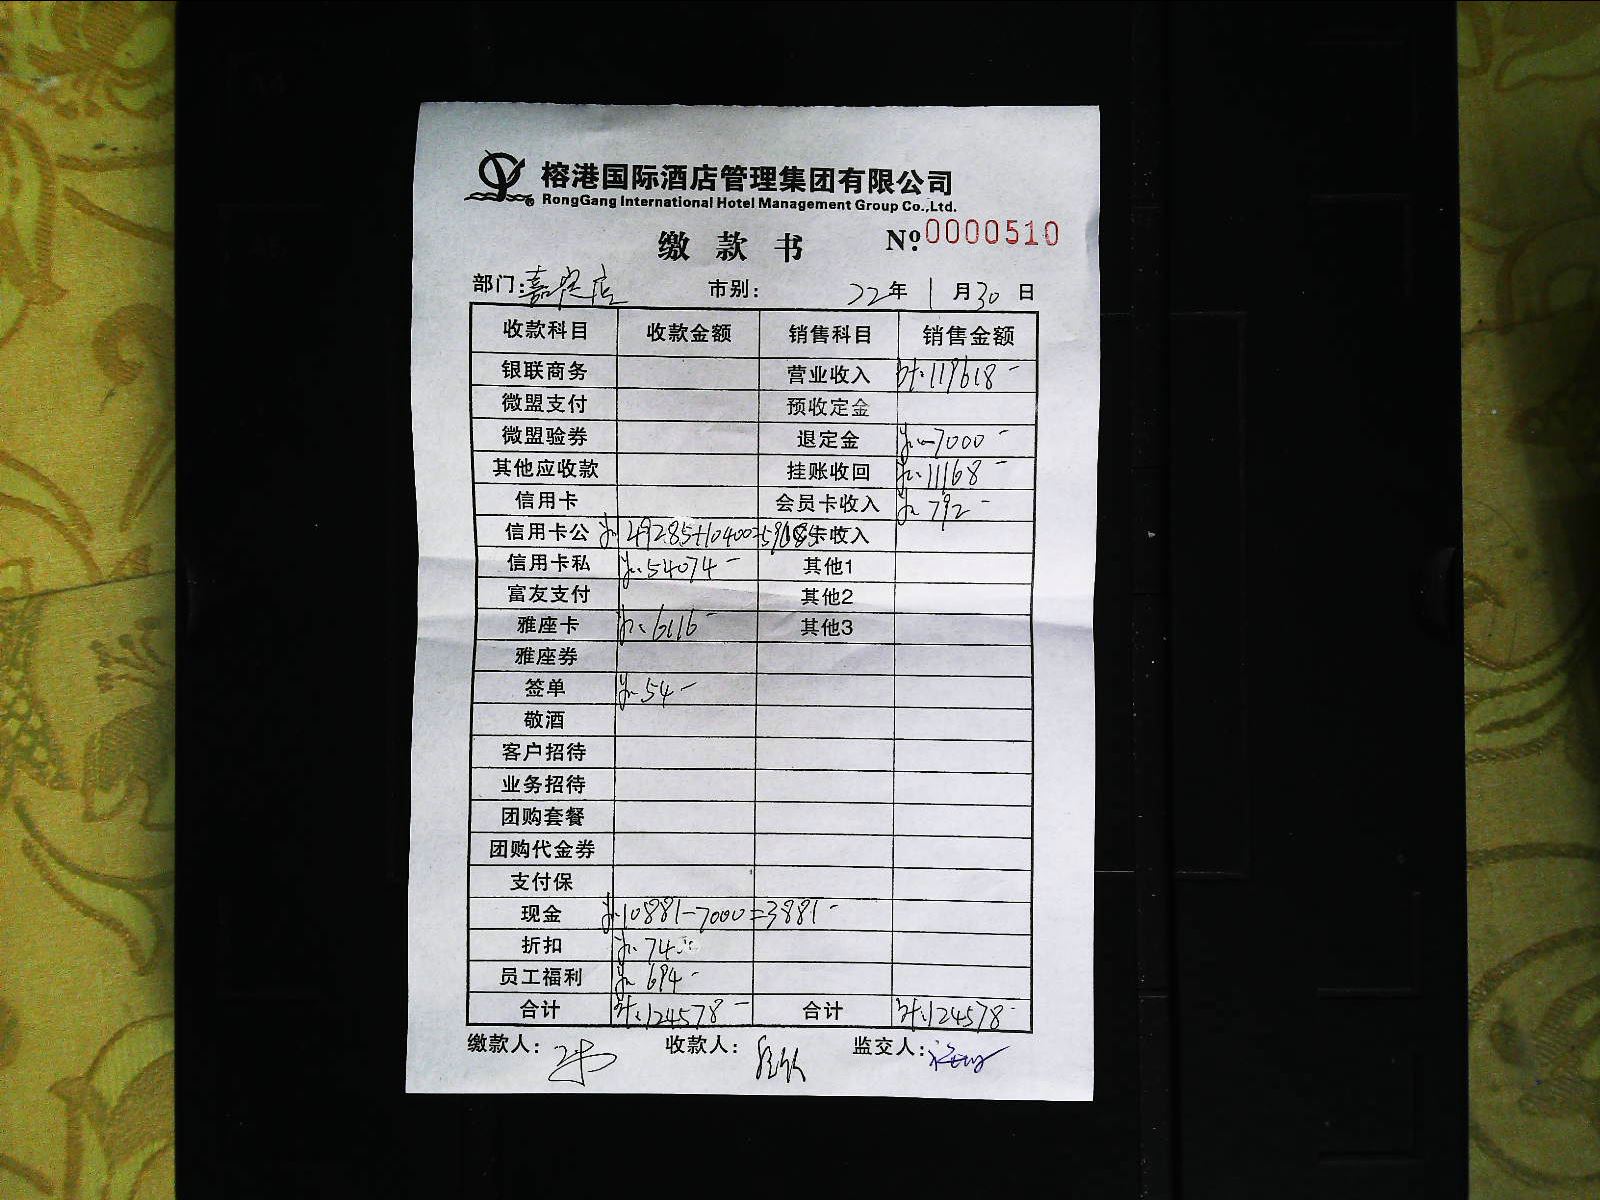 榕港国际酒店管理集团有限公司
RongGang International Hotel Management Group Co.,Ltd.
缴款书 № 0000510
部门: 嘉定店 市别: 22年 1月30日
收款科目 收款金额 销售科目 销售金额
银联商务 营业收入 计:119618-
微盟支付 预收定金
微盟验券 退定金 -7000-
其他应收款 挂账收回 11168-
信用卡 会员卡收入 792-
信用卡公 49285+10400=59685 卡收入
信用卡私 54074- 其他1
富友支付 其他2
雅座卡 6116- 其他3
雅座券
签单 54-
敬酒
客户招待
业务招待
团购套餐
团购代金券
支付保
现金 10881-7000=3881-
折扣 74
员工福利 694-
合计 计:124578- 合计 计:124578-
缴款人: 收款人: 监交人: